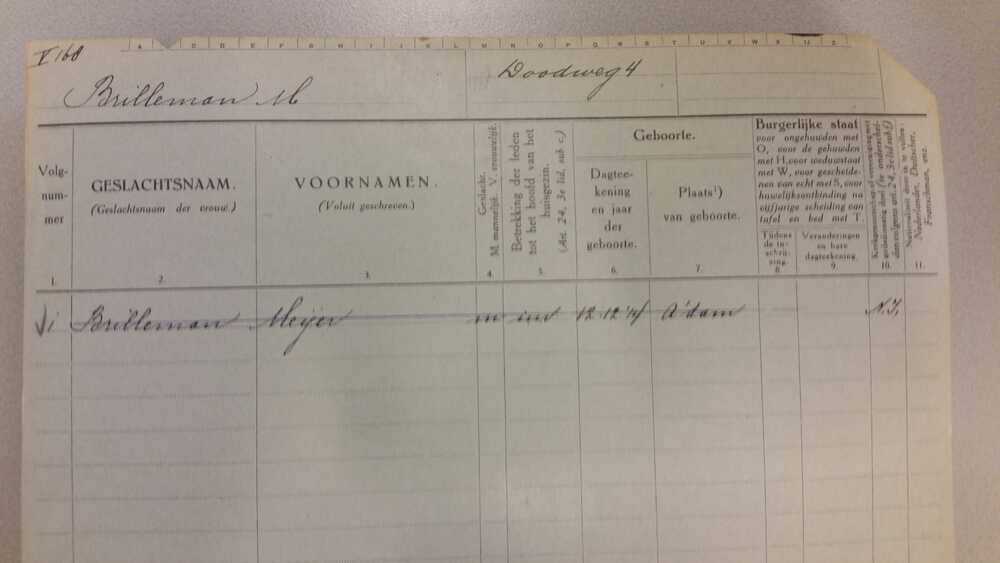 V 168
A B C D E F G H I J K L M N O P Q R S T U V W X IJ Z
Brilleman M
Doodweg 4
Volg-
num-
mer
1.
GESLACHTSNAAM.
(Geslachtsnaam der vrouw.)
2.
VOORNAMEN.
(Voluit geschreven.)
3.
Geslacht.
M. mannelijk. V. vrouwelijk.
4.
Betrekking der leden
tot het hoofd van het
huisgezin.
(Art. 24, 3e lid, sub c.)
5.
Geboorte.
Dagtee-
kening
en jaar
der
geboorte.
6.
Plaats¹)
van geboorte.
7.
Burgerlijke staat
voor ongehuwden met
O, voor de gehuwden
met H, voor weduwstaat
met W, voor gescheide-
nen van echt met S, voor
huwelijksontbinding na
vijfjarige scheiding van
tafel en bed met T.
Tijdens
de in-
schrij-
ving.
8.
Veranderingen
en hare
dagteekening.
9.
10.
Nationaliteit door in te vullen:
Nederlander, Duitscher,
Franschman, enz.
11.
1 Brilleman Meijer m inw 12 12 A'dam N.I.